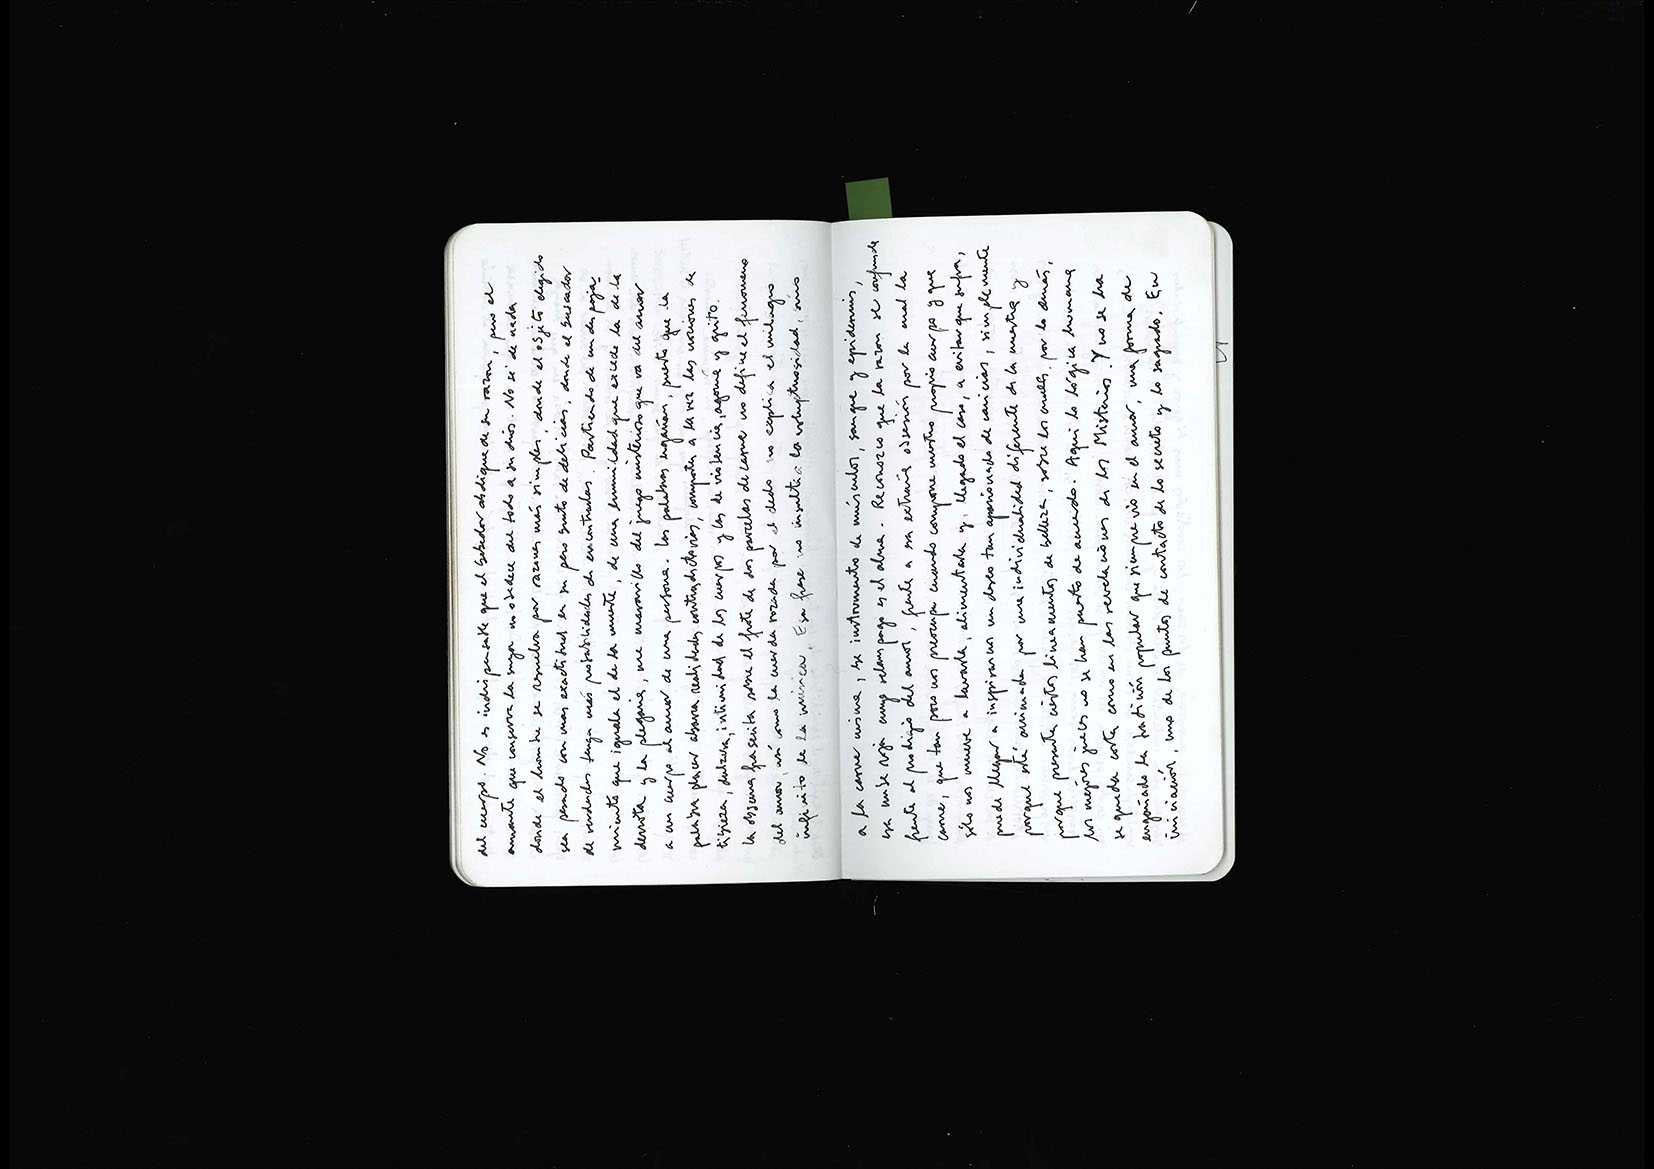 del cuerpo. No es indispensable que el bebedor abdique de su razón, pero el
amante que conserva la suya no obedece del todo a su dios. No sé de nada
donde el hombre se resuelva por razones más simples, donde el objeto elegido
sea pesado con mas exactitud en su peso bruto de delicias, donde el buscador
de verdades tenga más probabilidades de encontrarlas. Partiendo de un despoja-
miento que iguala el de la muerte, de una humildad que excede la de la
derrota y la plegaria, me maravillo del juego misterioso que va del amor
a un cuerpo al amor de una persona. Las palabras engañan, puesto que la
palabra placer abarca realidades contradictorias, comporta a la vez las nociones de
tibieza, dulzura, intimidad de los cuerpos y las de violencia, agonía y grito.
La obscena frasecita sobre el frote de dos parcelas de carne no define el fenomeno
del amor, así como la cuerda rozada por el dedo no explica el milagro
infinito de la música. Esa frase no insulta a la voluptuosidad, sino
a la carne misma, ese instrumento de músculos, sangre y epidermis,
esa nube roja cuyo relámpago es el alma. Reconozco que la razon se confunde
frente al prodigio del amor, frente a esa extraña obsesión por la cual la
carne, que tan poco nos preocupa cuando compone nuestro propio cuerpo y que
sólo nos mueve a lavarla, alimentarla y, llegado el caso, a evitar que sufra,
puede llegar a inspirarnos un deseo tan apasionado de caricias, simplemente
porque está animada por una individualidad diferente de la nuestra y
porque presenta ciertos lineamientos de belleza, sobre los cuales, por lo demás,
los mejores jueces no se han puesto de acuerdo. Aquí la lógica humana
se queda corta como en las revelaciones de los Misterios. Y no se ha
engañado la tradición popular que siempre vio en el amor, una forma de
iniciación, uno de los puntos de contacto de lo secreto y lo sagrado. En